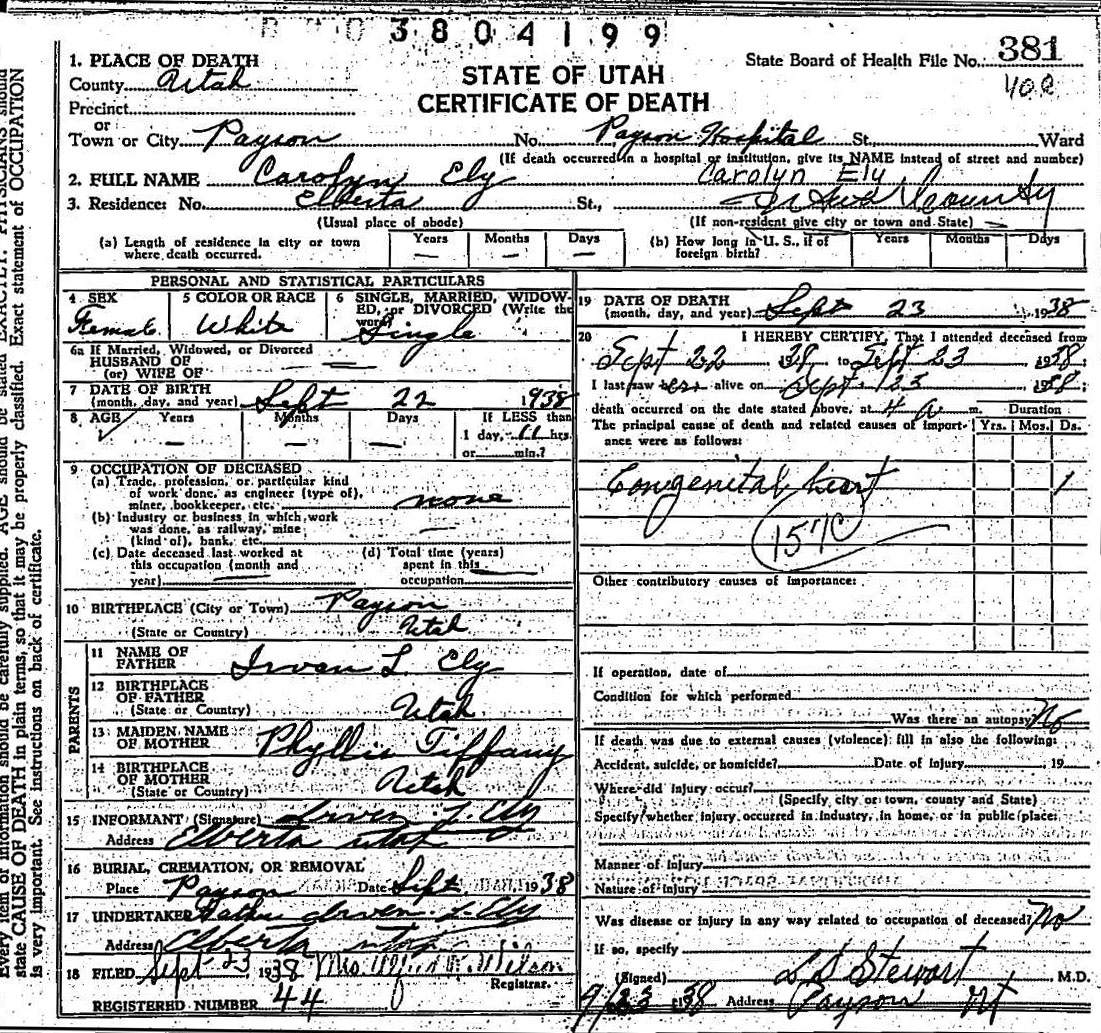 3804199
1. PLACE OF DEATH
County Utah
Precinct
or
Town or City Payson No. Payson Hospital St. Ward
STATE OF UTAH
CERTIFICATE OF DEATH
State Board of Health File No. 381
(If death occurred in a hospital or institution, give its NAME instead of street and number)
2. FULL NAME Carolyn Ely Carolyn Ely
3. Residence: No. Elberta St., County
(Usual place of abode) (If non-resident give city or town and State)
(a) Length of residence in city or town where death occurred. Years Months Days
(b) How long in U. S., if of foreign birth? Years Months Days
PERSONAL AND STATISTICAL PARTICULARS
4 SEX
Female
5 COLOR OR RACE
White
6 SINGLE, MARRIED, WIDOWED, or DIVORCED (Write the word)
Single
6a If Married, Widowed, or Divorced
HUSBAND OF
(or) WIFE OF
7 DATE OF BIRTH
(month, day, and year) Sept 22 1938
8 AGE Years Months Days If LESS than
1 day, 11 hrs.
or min.?
9 OCCUPATION OF DECEASED
(a) Trade, profession, or particular kind
of work done, as engineer (type of),
miner, bookkeeper, etc. none
(b) Industry or business in which work
was done, as railway, mine
(kind of), bank, etc.
(c) Date deceased last worked at
this occupation (month and
year)
(d) Total time (years)
spent in this
occupation
10 BIRTHPLACE (City or Town) Payson
(State or Country) Utah
PARENTS
11 NAME OF
FATHER Irvan L. Ely
12 BIRTHPLACE
OF FATHER
(State or Country) Utah
13 MAIDEN NAME
OF MOTHER Phyllis Tiffany
14 BIRTHPLACE
OF MOTHER
(State or Country) Utah
15 INFORMANT (Signature) Irven L. Ely
Address Elberta Utah
16 BURIAL, CREMATION, OR REMOVAL
Place Payson Date Sept. 1938
17 UNDERTAKER Father Irven L. Ely
Address Elberta Utah
18 FILED Sept 23 1938 Mrs Wilson
Registrar.
REGISTERED NUMBER 44
19 DATE OF DEATH
(month, day, and year) Sept 23 1938
20 I HEREBY CERTIFY, That I attended deceased from
Sept 22 38, to Sept 23 1938
I last saw alive on Sept 23 1938;
death occurred on the date stated above, at 4 a m. Duration
The principal cause of death and related causes of importance were as follows: Yrs. Mos. Ds.
Congenital heart 1
157C
Other contributory causes of importance:
If operation, date of
Condition for which performed
Was there an autopsy No
If death was due to external causes (violence) fill in also the following:
Accident, suicide, or homicide? Date of injury 19
Where did injury occur?
(Specify city or town, county and State)
Specify whether injury occurred in industry, in home, or in public place:
Manner of injury
Nature of injury
Was disease or injury in any way related to occupation of deceased? No
If so, specify
(Signed) L D Stewart M.D.
9/23 1938 Address Payson Ut
Every item of information should be carefully supplied. AGE should be stated EXACTLY. PHYSICIANS should
state CAUSE OF DEATH in plain terms, so that it may be properly classified. Exact statement of OCCUPATION
is very important. See instructions on back of certificate.